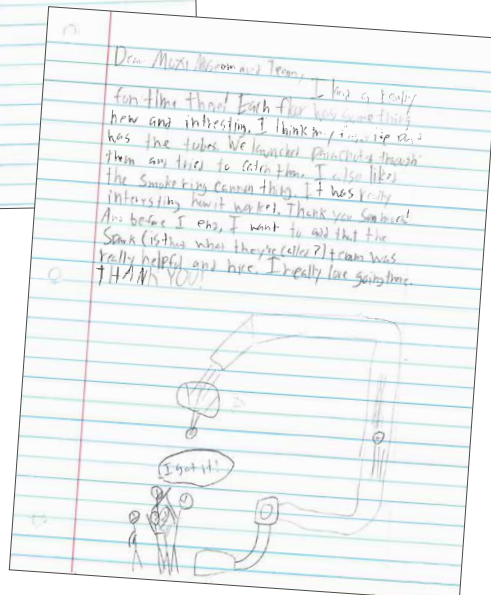 Dear Moxi Museum and Team, I had a really
fun time there! Each floor has something
new and intresting. I think my favorite part
was the tubes. We launched parachutes through
them and tried to catch them. I also liked
the smoke ring cannon thing. It was really
interesting how it worked. Thank you so much!
And before I end, I want to add that the
Spark (is that what they're called?) team was
really helpful and nice. I really love going there.
THANK YOU!
I got it!